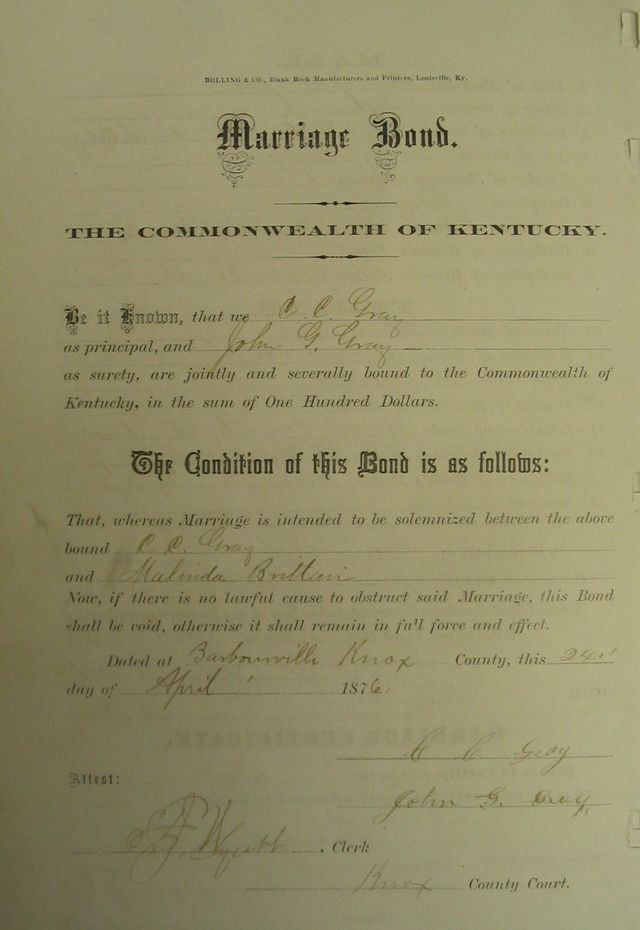 BOLLING & CO., Blank Book Manufacturers and Printers, Louisville, Ky.
Marriage Bond.
THE COMMONWEALTH OF KENTUCKY.
Be it Known, that we C. C. Gray
as principal, and John G. Gray
as surety, are jointly and severally bound to the Commonwealth of
Kentucky, in the sum of One Hundred Dollars.
The Condition of this Bond is as follows:
That, whereas Marriage is intended to be solemnized between the above
bound C C. Gray
and Malinda Brittain
Now, if there is no lawful cause to obstruct said Marriage, this Bond
shall be void, otherwise it shall remain in full force and effect.
Dated at Barbourville Knox County, this 24
day of April 1876.
C C Gray
Attest:
John G. Gray
Wyatt, Clerk
Knox County Court.